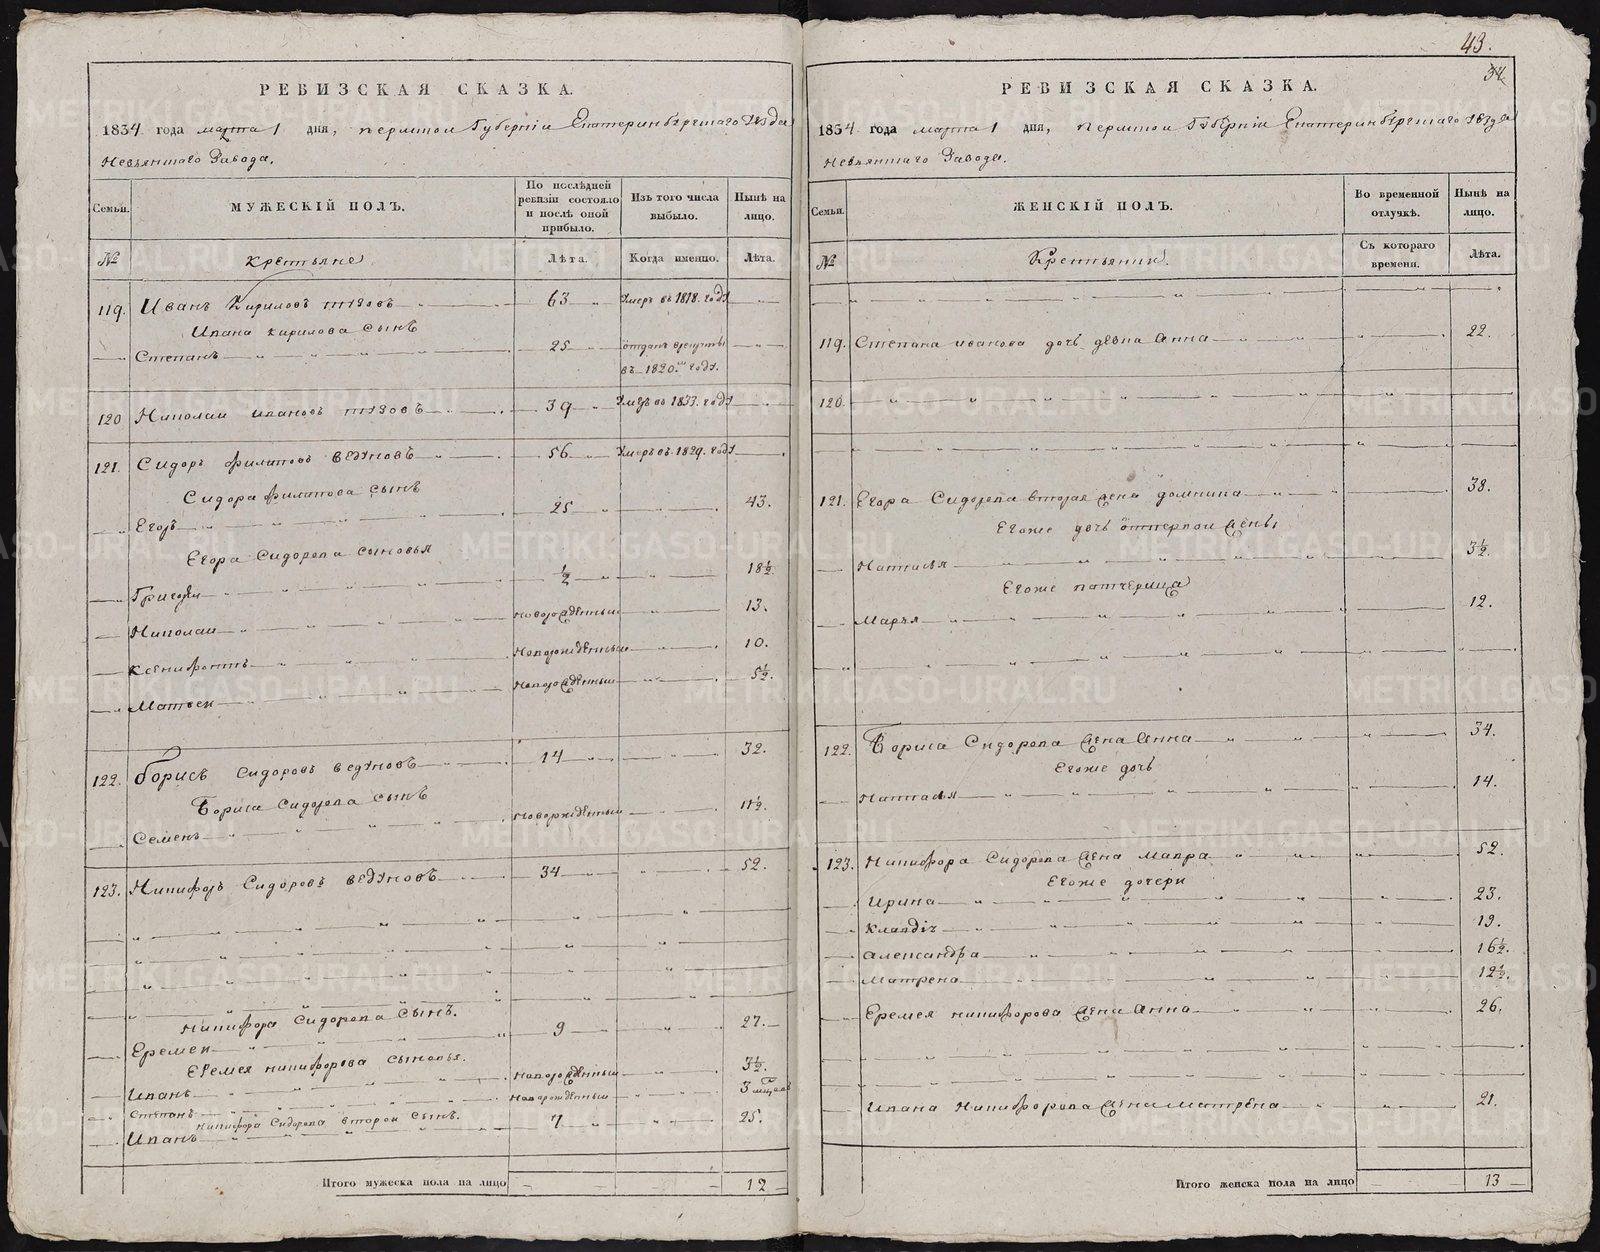 43.
34
РЕВИЗСКАЯ СКАЗКА.
1834 года марта 1 дня, Пермской Губерніи Екатеринбургскаго Уезда
Невьянскаго Завода.
Семьи.
МУЖЕСКІЙ ПОЛЪ.
По послѣдней ревизіи состояло и послѣ оной прибыло.
Изъ того числа выбыло.
Нынѣ на лицо.
№
Крестьяне
Лѣта.
Когда именно.
Лѣта.
119. Иванъ Кириловъ 63 Умеръ въ 1818. году
Ивана Кирилова сынъ
Степанъ 25 отданъ врекруты
въ 1820.м году.
120 Николай Ивановъ 39 Умеръ въ 1833. году
121. Сидоръ Филиповъ Ведуновъ 56 Умеръ въ 1829. году
Сидора Филипова сынъ
Егоръ 25 43.
Егора Сидорова сыновья
Григорей ½ 18½
Николай Новорожденный 13.
Ксенифонтъ Новорожденный 10.
Матвей Новорожденный 5½.
122. Борисъ Сидоровъ Ведуновъ 14 32.
Бориса Сидорова сынъ
Семенъ Новорожденный 11½.
123. Никифоръ Сидоровъ Ведуновъ 34 52.
Никифора Сидорова сынъ.
Еремей 9 27.
Еремея Никифорова сыновья.
Иванъ Новорожденный 3½.
Степанъ Новорожденный 3
Никифора Сидорова второй сынъ.
Иванъ 7 25.
Итого мужеска пола на лицо 12
РЕВИЗСКАЯ СКАЗКА.
1834 года марта 1 дня, Пермской Губерніи Екатеринбургскаго Уезда
Невьянскаго Завода.
Семьи.
ЖЕНСКІЙ ПОЛЪ.
Во временной отлучкѣ.
Нынѣ на лицо.
№
Крестьянки.
Съ котораго времени.
Лѣта.
119. Степана Иванова дочь девка Анна 22.
120.
121. Егора Сидорова вторая жена Домнина 38.
Егоже дочь отпервой жены
Наталья 3½.
Егоже патчерица
Марья 12.
122. Бориса Сидорова жена Анна 34.
Егоже дочь
Наталья 14.
123. Никифора Сидорова жена Мавра 52.
Егоже дочери
Ирина 23.
Клавдія 19.
Александра 16½.
Матрена 12½.
Еремея Никифорова жена Анна 26.
Ивана Никифорова жена Матрена 21.
Итого женска пола на лицо 13
METRIKI.GASO-URAL.RU